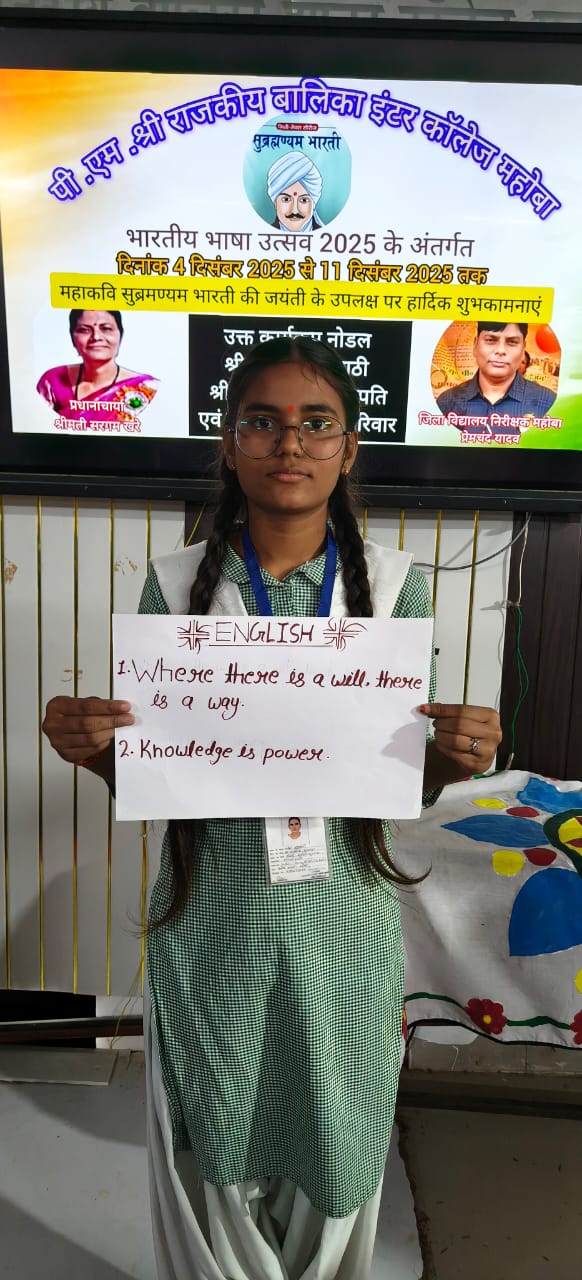 पी .एम .श्री राजकीय बालिका इंटर कॉलेज महोबा
सुब्रह्मण्यम भारती
भारतीय भाषा उत्सव 2025 के अंतर्गत
दिनांक 4 दिसंबर 2025 से 11 दिसंबर 2025 तक
महाकवि सुब्रमण्यम भारती की जयंती के उपलक्ष पर हार्दिक शुभकामनाएं
उक्त कार्यक्रम नोडल
एवं
प्रधानाचार्या
श्रीमती सरगम खरे
जिला विद्यालय निरीक्षक महोबा
प्रेमचंद यादव
ENGLISH
1. Where there is a will, there
is a way.
2. Knowledge is power.